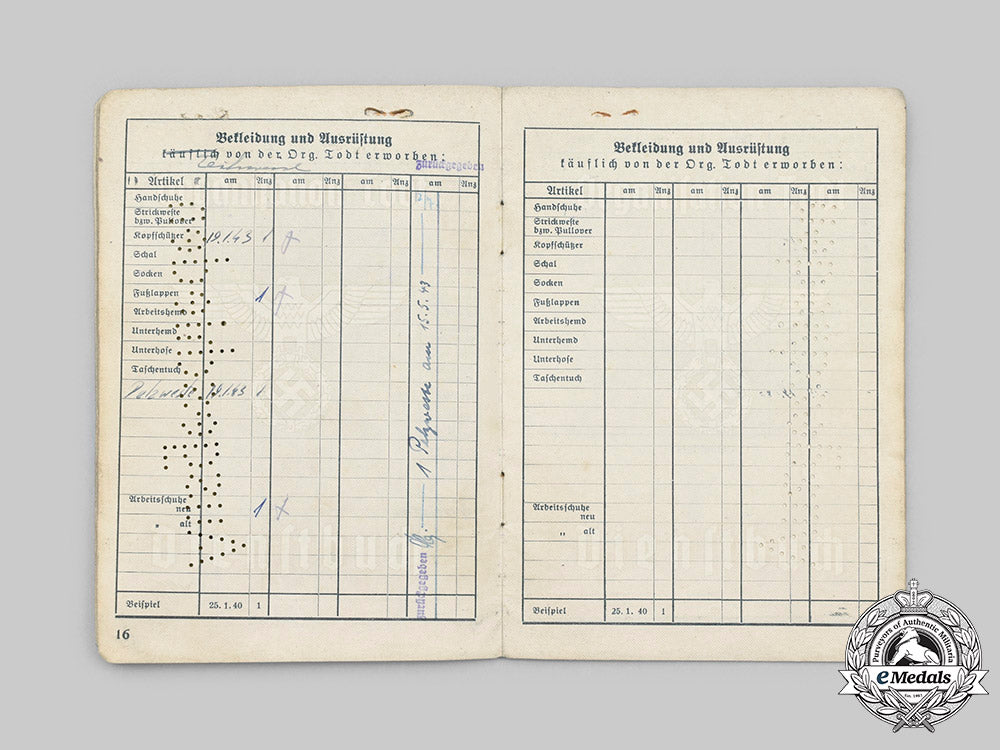 Bekleidung und Ausrüstung
käuflich von der Org. Todt erworben:
leihweise
Zurückgegeben
Artikel am Anz am Anz am Anz am Anz
Handschuhe
Strickweste
bzw. Pullover
Kopfschützer 19.1.43 1
Schal
Socken
Fußlappen 1
Arbeitshemd
Unterhemd
Unterhose
Taschentuch
Pelzweste 19.1.43 1
Arbeitsschuhe
neu 1
„ alt
Beispiel 25.1.40 1
1 Pelzweste am 15.5.43
Zurückgegeben
Dienstbuch
16
Bekleidung und Ausrüstung
käuflich von der Org. Todt erworben:
Artikel am Anz am Anz am Anz am Anz
Handschuhe
Strickweste
bzw. Pullover
Kopfschützer
Schal
Socken
Fußlappen
Arbeitshemd
Unterhemd
Unterhose
Taschentuch
Arbeitsschuhe
neu
„ alt
Beispiel 25.1.40 1
Dienstbuch
Purveyors of Authentic Militaria
eMedals